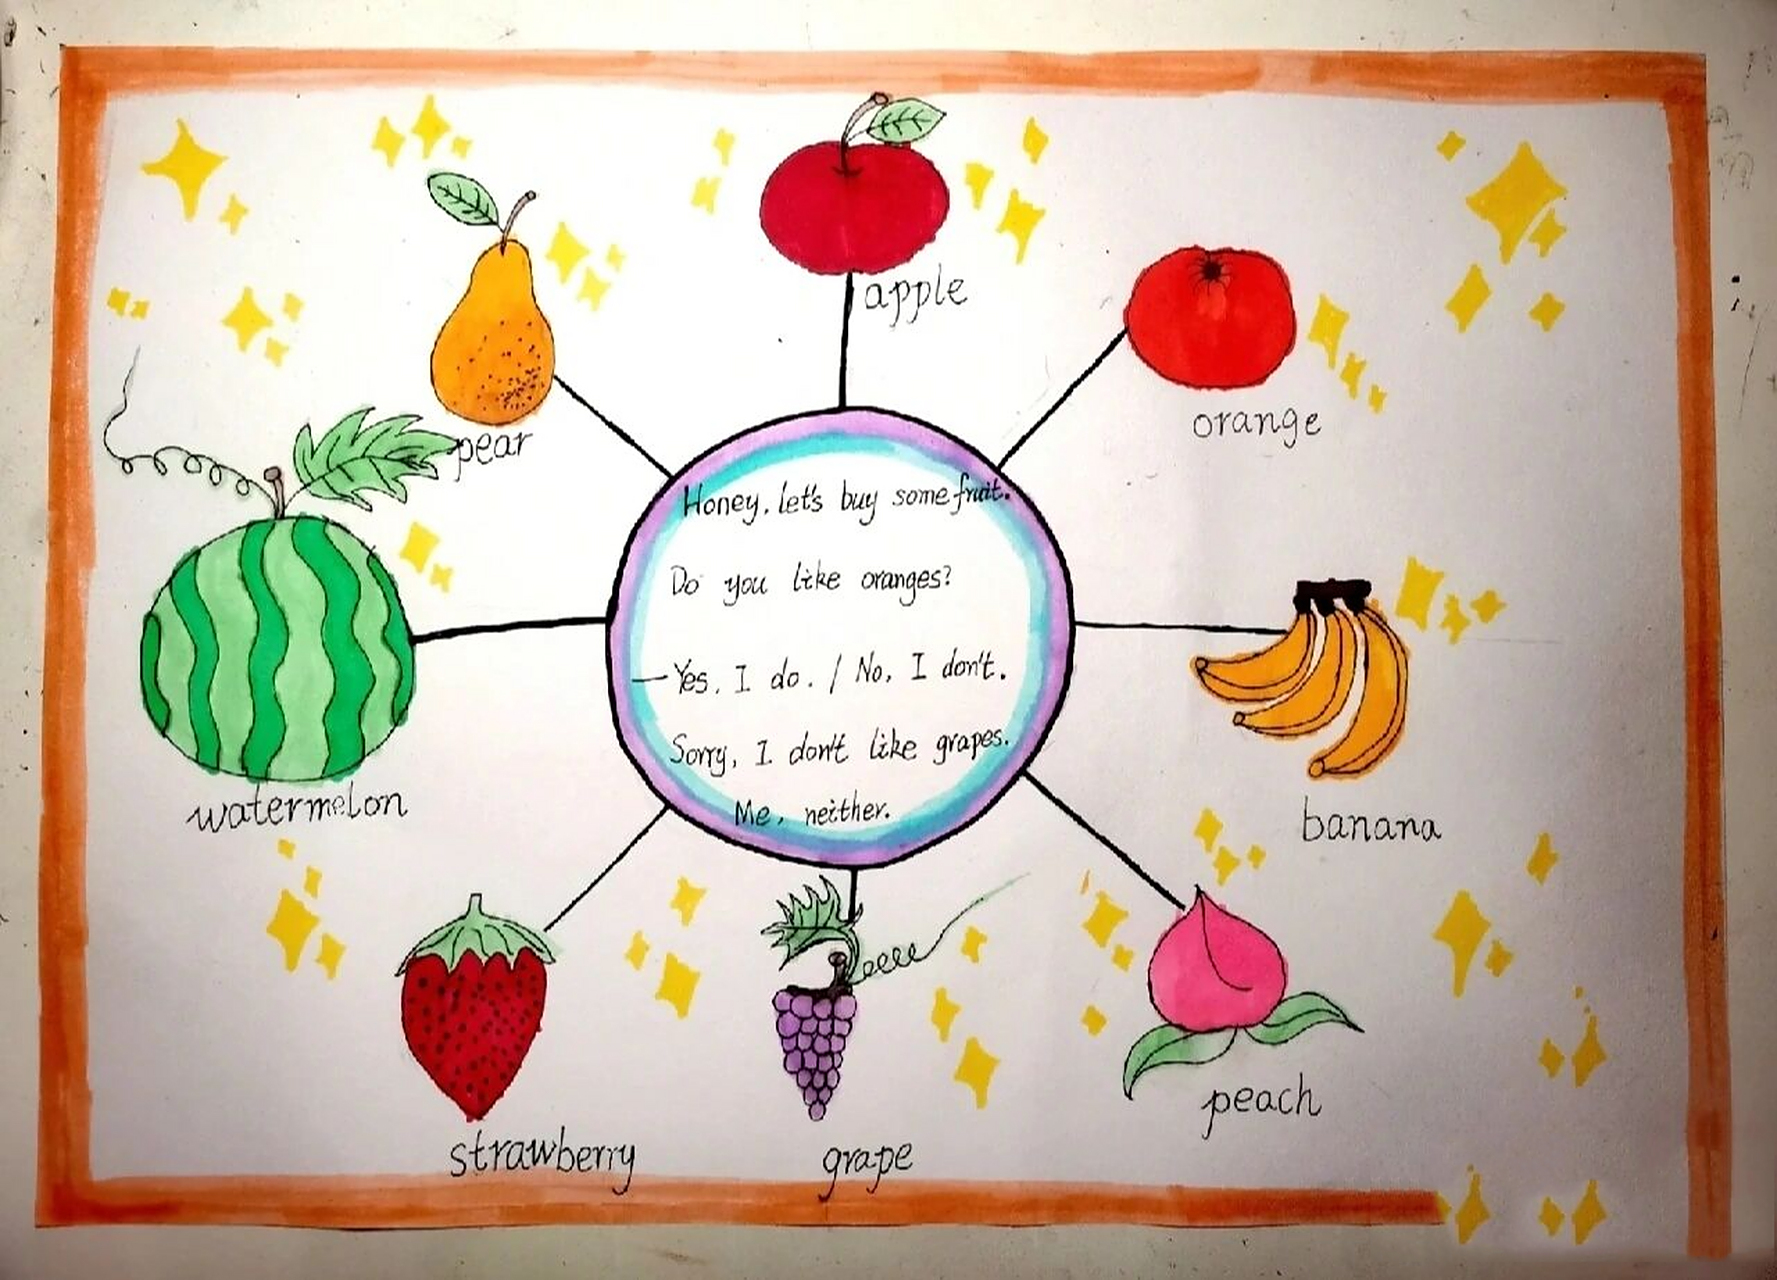 apple
orange
pear
Honey, let's buy some fruit.
Do you like oranges?
—Yes, I do. / No, I don't.
Sorry, I don't like grapes.
Me, neither.
watermelon
banana
strawberry
grape
peach